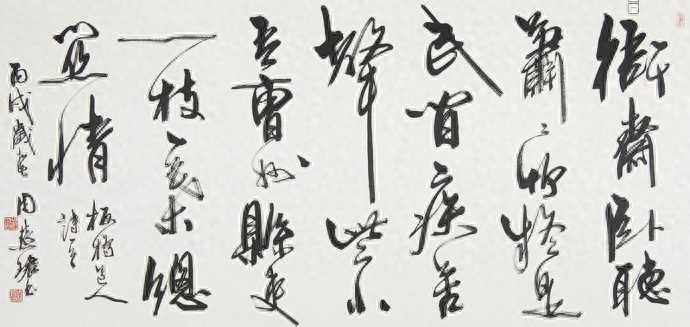 衙齋卧聽
蕭蕭竹疑是
民間疾苦
聲些小
吾曹州縣吏
一枝一葉總
關情
板橋道人
詩
丙戌歲 周慧珺书